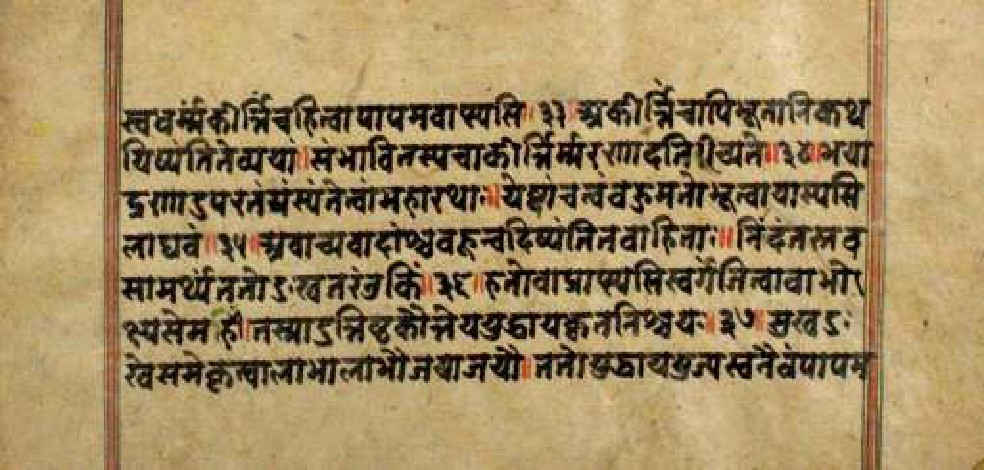 स्वधर्म्मंकीर्त्तिंचहित्वापापमवाप्स्यसि ३३ अकीर्त्तिंचापिभूतानिकथ
यिष्यंतितेव्यया॥संभावितस्यचाकीर्त्तिर्म्मरणादतिरीच्यते॥३४॥भया
द्रणाऽपरतंम्रंस्यंतेत्वांमहारथाः॥येष्टांचत्वंवहुमतोभूत्वायास्यसि
लाघवं॥३५॥अवाच्यवादांश्चवहून्वदिष्यंतितवाहिताः॥निंदंतस्तव
सामर्थ्यंततोऽःखतरंतुकिं॥३६॥हतोवाप्राप्स्यसिस्वर्गंजित्वावाभो
क्ष्यसेमहीं।तस्माऽत्तिष्टकौंतेययुद्धायकृतनिश्चयः॥३७॥सुखऽः
खेसमेकृत्वालाभालाभौजयाजयौ॥ततोयुद्धाययुज्यस्वनैवंपापम